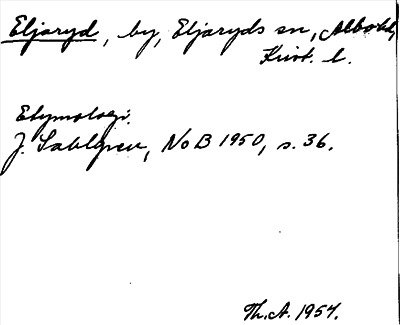 Eljaryd, by, Eljaryds sn, Albo hd,
Krist. l.
Etymologi.
J. Sahlgren, NoB 1950, s. 36.
Th. A. 1957.